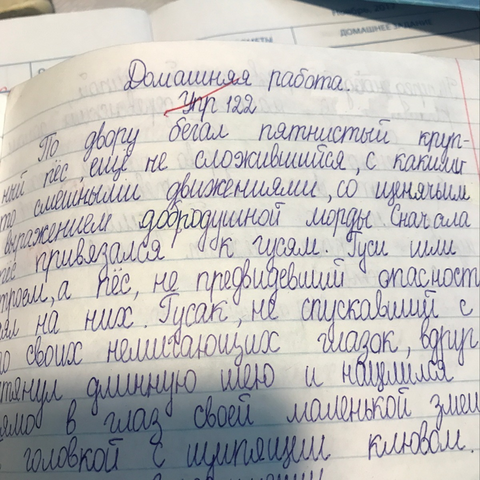 ДОМАШНЕЕ ЗАДАНИЕ
Домашняя работа.
Упр 122
По двору бегал пятнистый круп-
ный пёс, ещё не сложившийся, с какими
то смешными движениями, со щенячьим
выражением добродушной морды. Сначала
пёс привязался к гусям. Гуси шли
троем, а пёс, не предвидевший опасност
ял на них. Гусак, не спускавший с
го своих немигающих глазок, вдруг
тянул длинную шею и нацелился
ямо в глаз своей маленькой змеи
головкой с шипящим клювом.